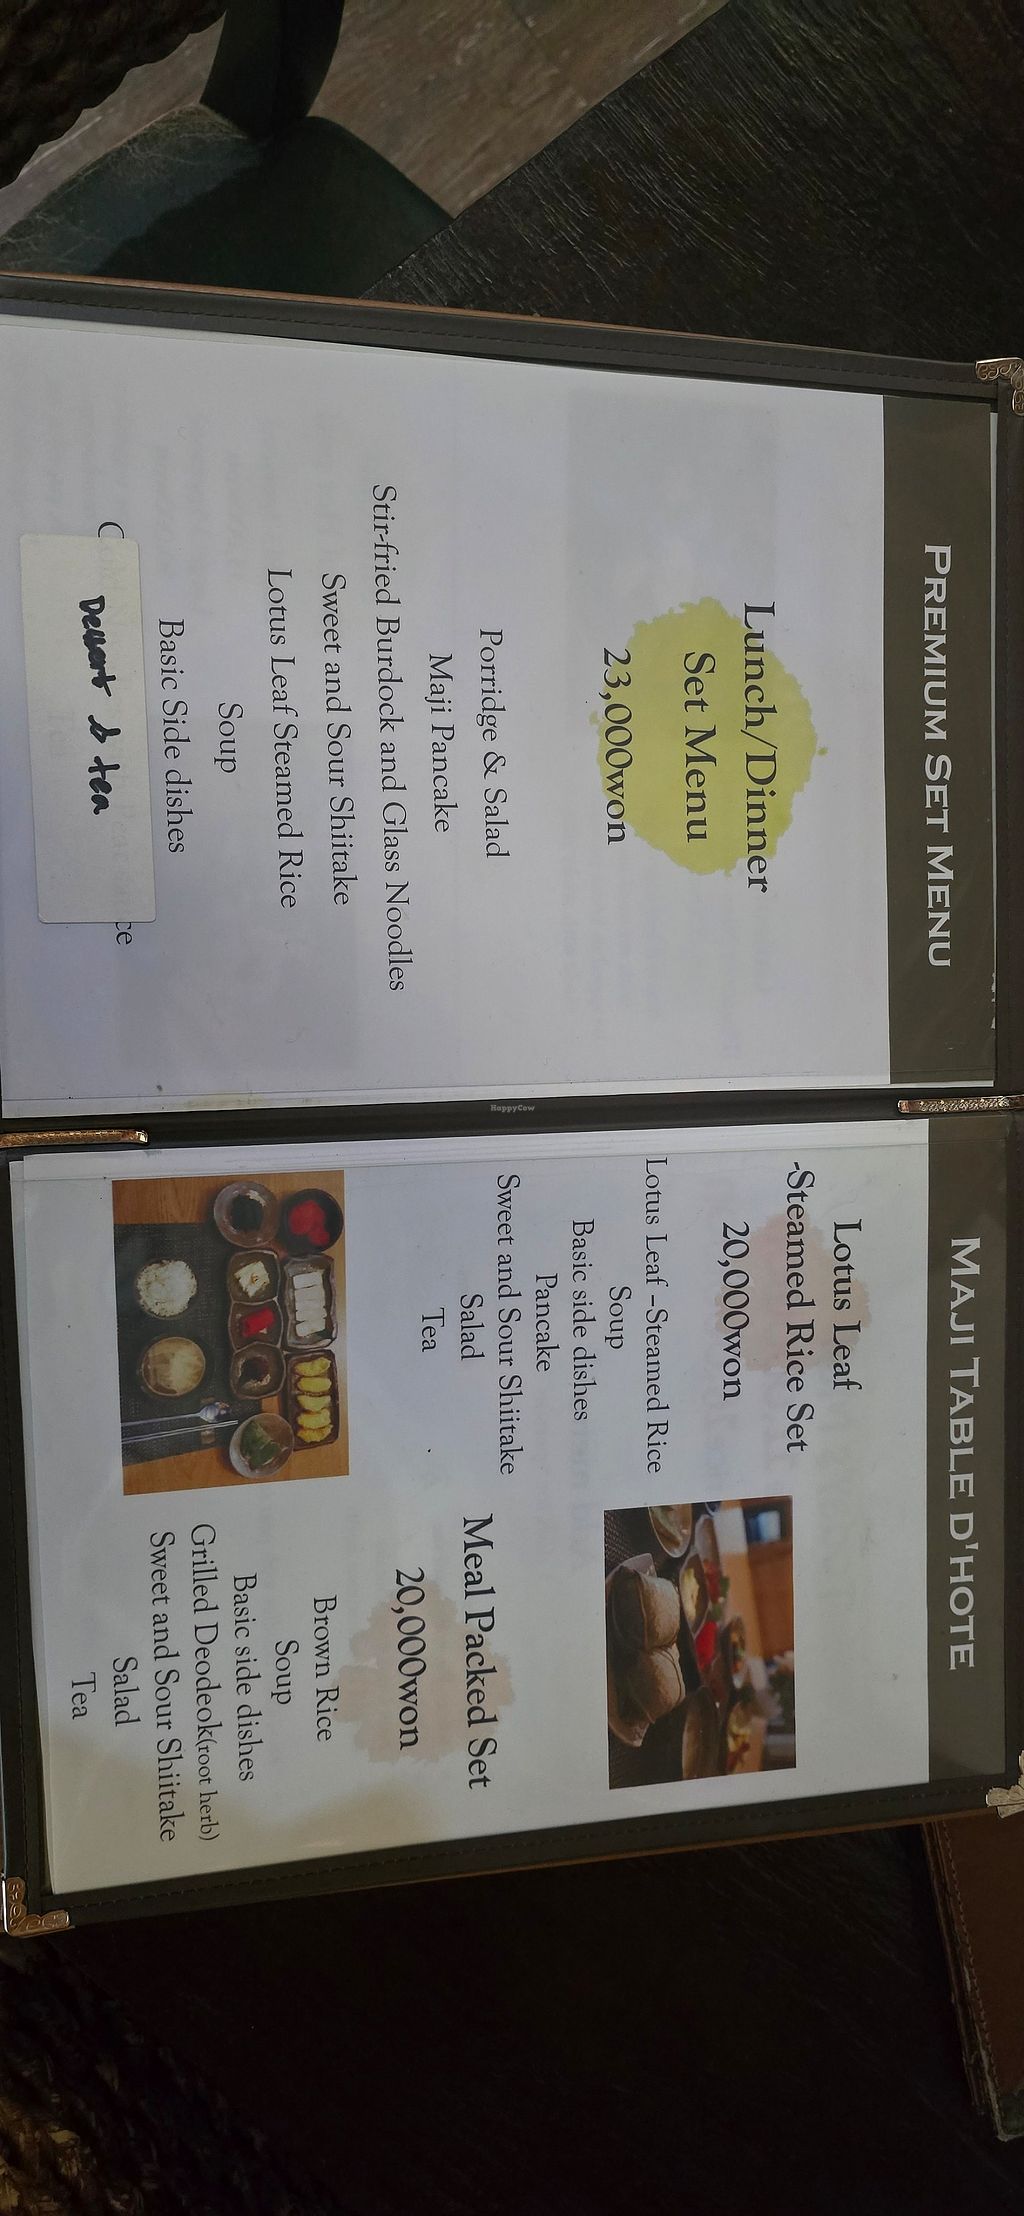 PREMIUM SET MENU
Lunch/Dinner
Set Menu
23,000won
Porridge & Salad
Maji Pancake
Stir-fried Burdock and Glass Noodles
Sweet and Sour Shiitake
Lotus Leaf Steamed Rice
Soup
Basic Side dishes
Dessert & tea
HappyCow
MAJI TABLE D'HOTE
Lotus Leaf
-Steamed Rice Set
20,000won
Lotus Leaf -Steamed Rice
Soup
Basic side dishes
Pancake
Sweet and Sour Shiitake
Salad
Tea
Meal Packed Set
20,000won
Brown Rice
Soup
Basic side dishes
Grilled Deodeok(root herb)
Sweet and Sour Shiitake
Salad
Tea